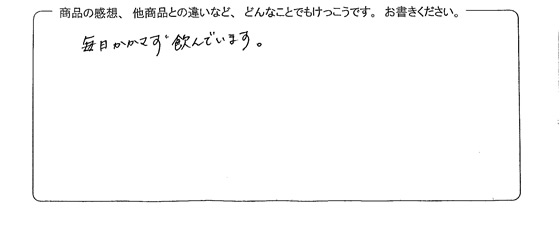 商品の感想、他商品との違いなど、どんなことでもけっこうです。お書きください。
毎日かかさず飲んでいます。